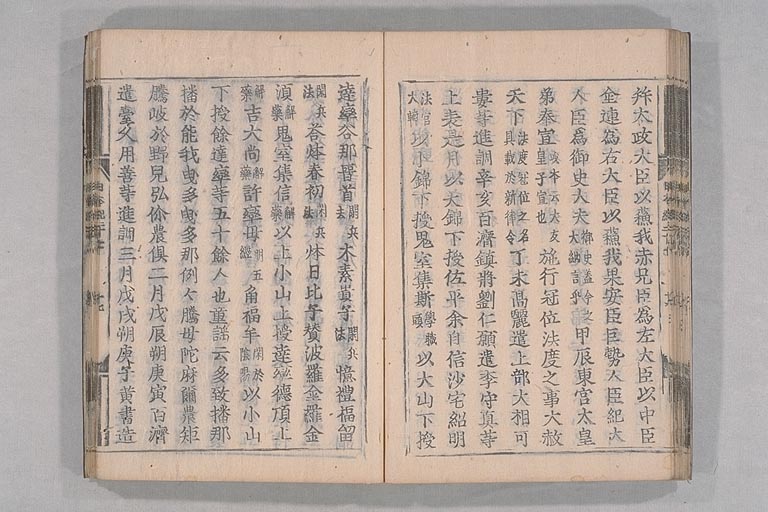 拜太政大臣以蘇我赤兄臣為左大臣以中臣
金連為右大臣以蘇我果安臣巨勢人臣紀大
人臣為御史大夫御史蓋今之大納言乎甲辰東宮太皇
弟奉宣或本云大友皇子宣也施行冠位法度之事大赦
天下法度冠位之名具載於新律令丁未高麗遣上部大相可
婁等進調辛亥百濟鎮將劉仁願遣李守真等
上表是月以大錦下授佐平余自信沙宅紹明
法官大輔以小錦下授鬼室集斯學職頭以大山下授
達率谷那晉首閑兵法木素貴子閑兵法憶禮福留
閑兵法荅㶱春初閑兵法㶱日比子賛波羅金羅金
須解藥鬼室集信解藥以上小山上授達率德頂上
解藥吉大尚解藥許率母明五經角福牟閑於陰陽以小山
下授餘達率等五十餘人也童謠云多致播那
播於能我曳多曳多那例々騰母陀麻爾農矩
騰岐於野兒弘儞農俱二月戊辰朔庚寅百濟
遣臺久用善等進調三月戊戌朔庚子黃書造